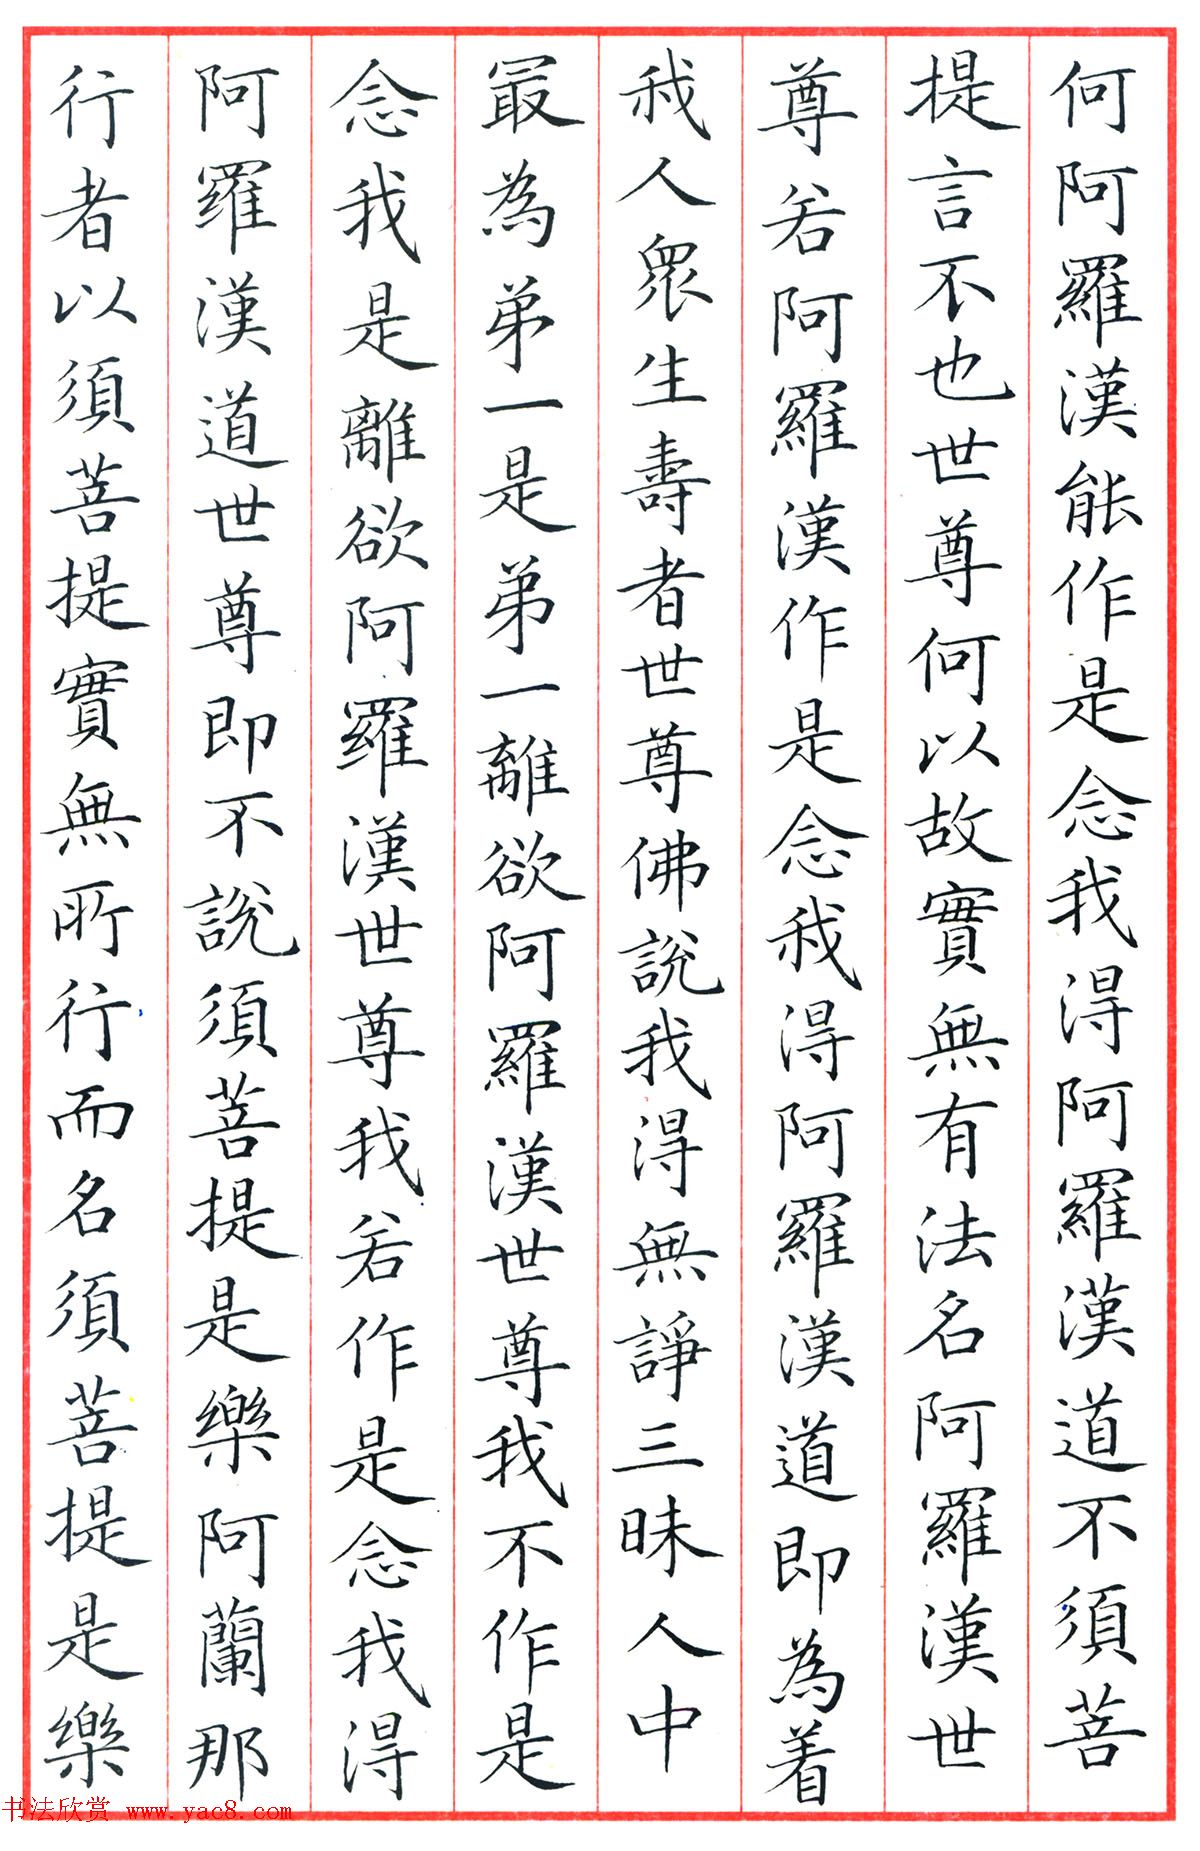 何阿羅漢能作是念我得阿羅漢道不須菩
提言不也世尊何以故實無有法名阿羅漢世
尊若阿羅漢作是念我得阿羅漢道即為着
我人眾生壽者世尊佛說我得無諍三昧人中
最為弟一是弟一離欲阿羅漢世尊我不作是
念我是離欲阿羅漢世尊我若作是念我得
阿羅漢道世尊即不說須菩提是樂阿蘭那
行者以須菩提實無所行而名須菩提是樂
书法欣赏 www.yac8.com